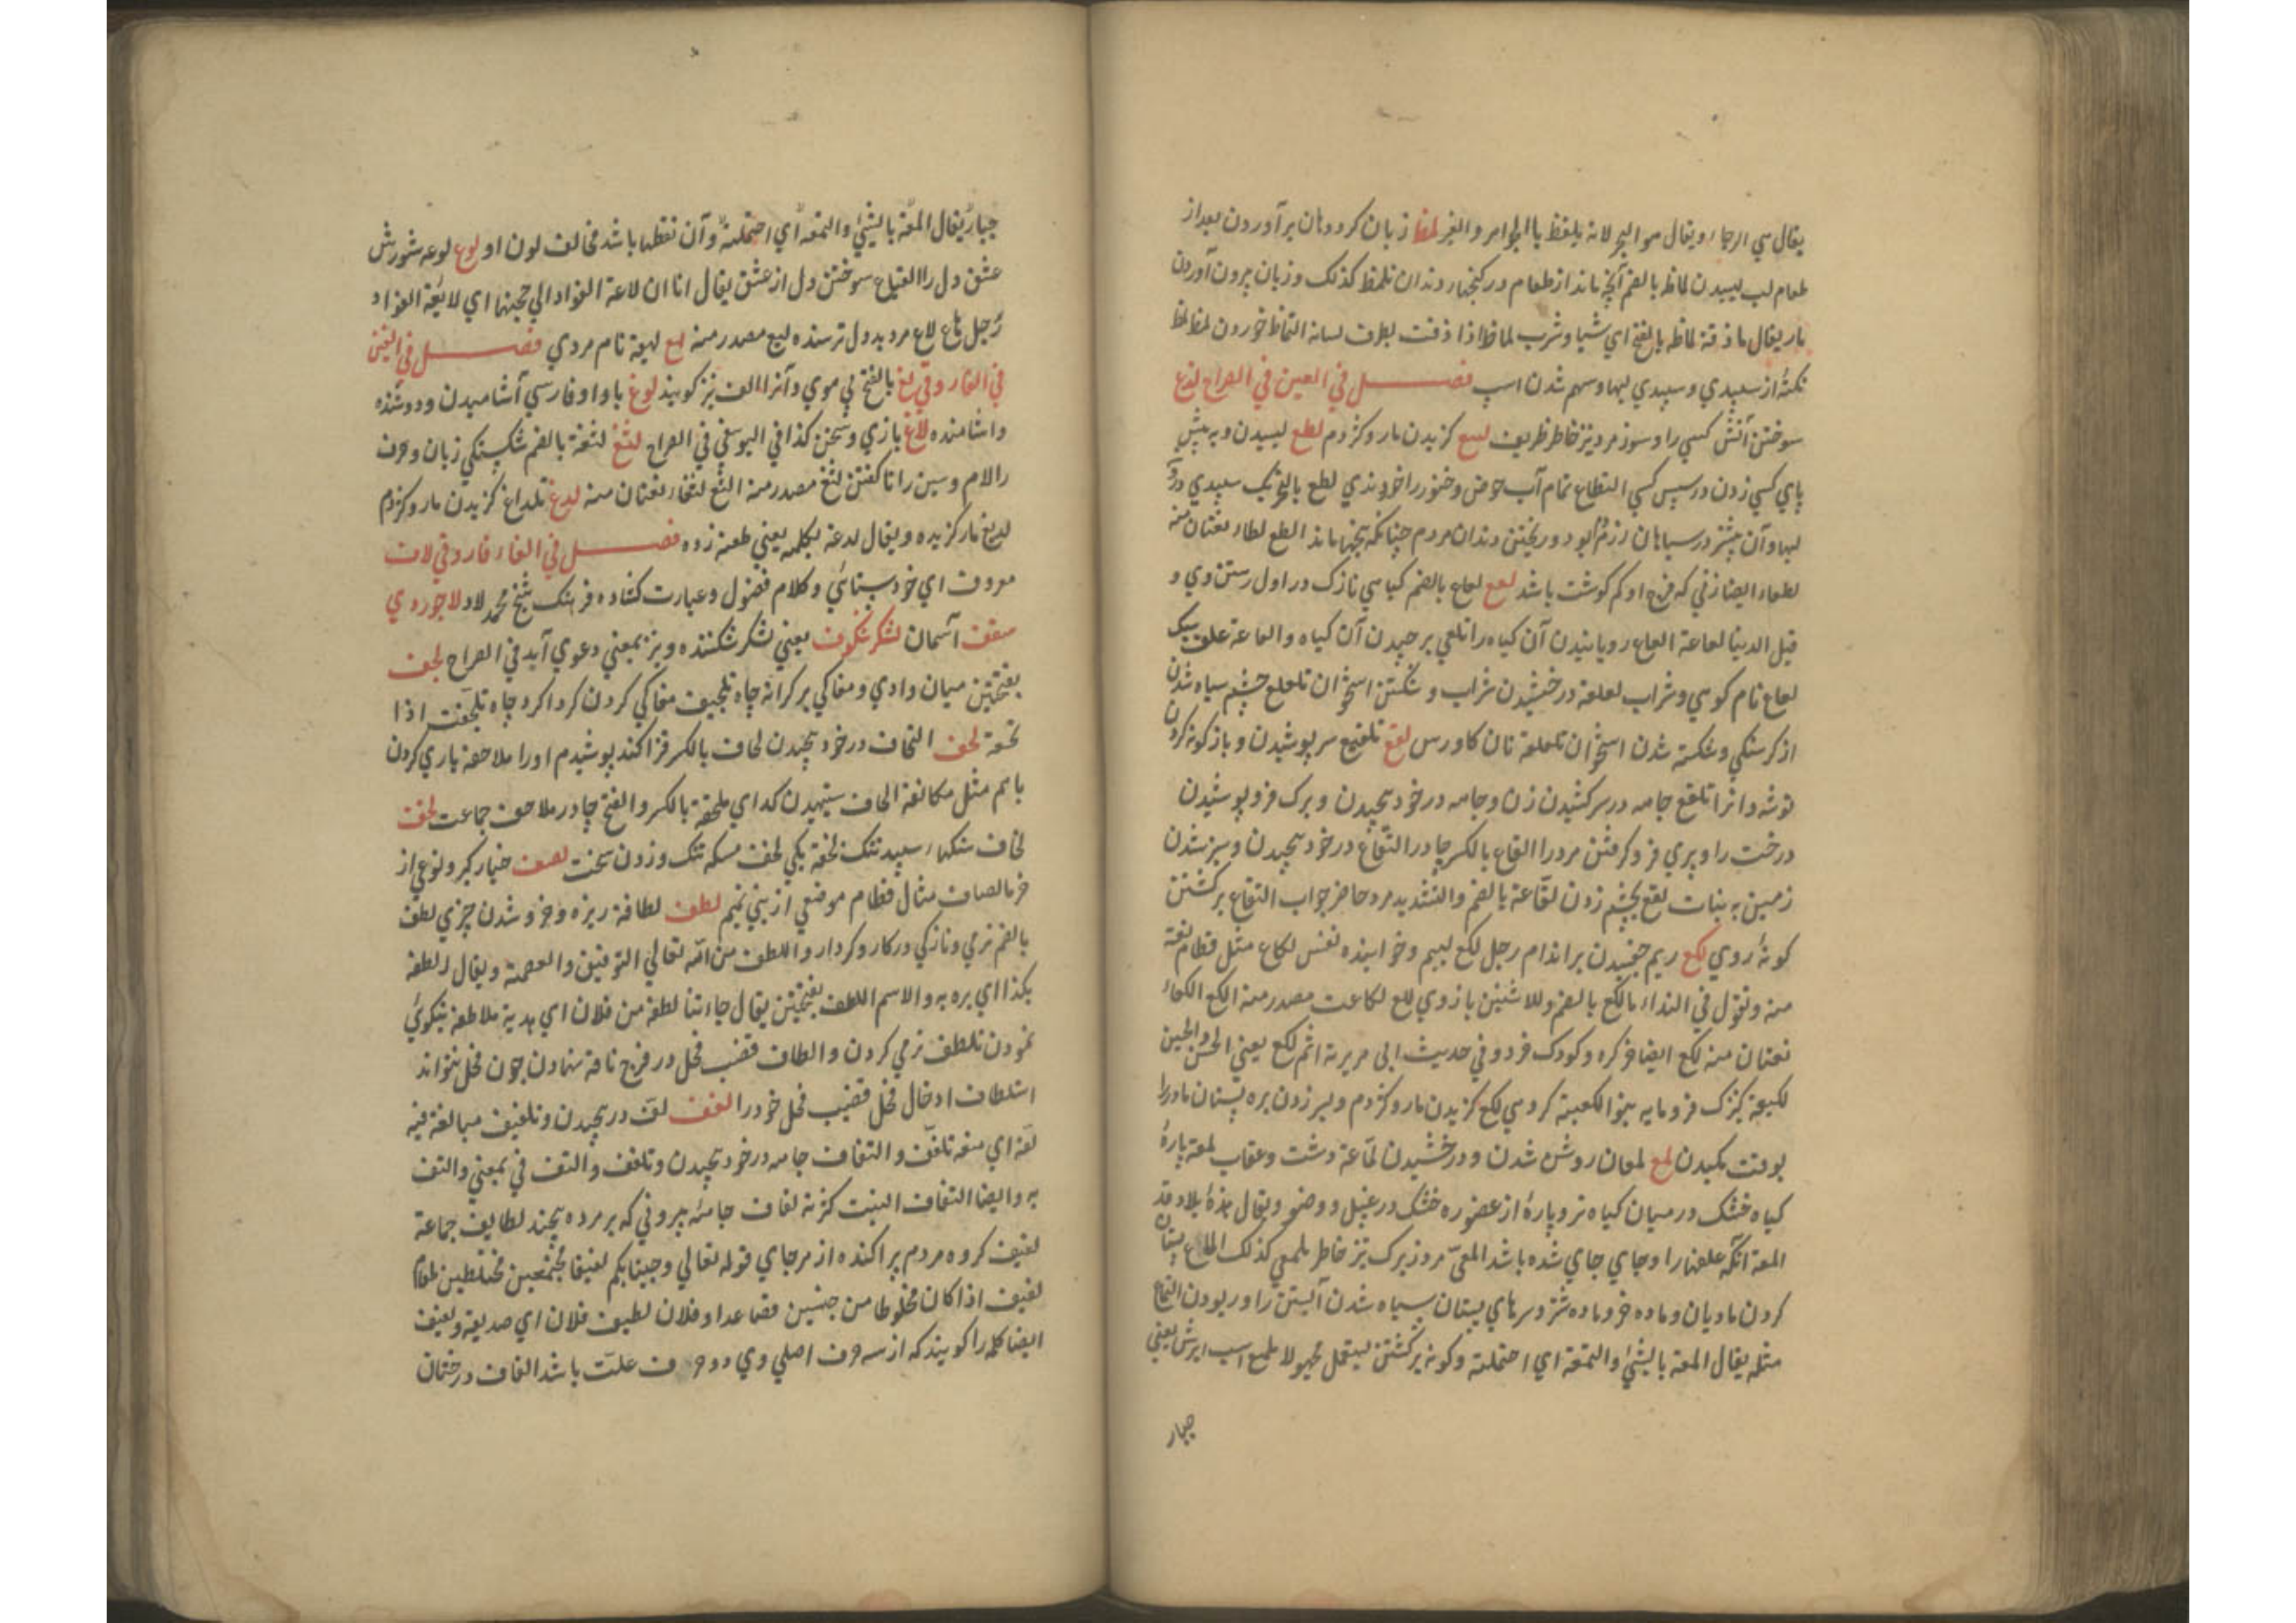 يقال هي الرحا ويقال هو البحر لانه يلفظ بالجواهر والعنبر لمظ زبان كرد دهان برآوردن بعد از
طعام لب ليسيدن لماظه بالضم آنچه ماند از طعام در كنجهاء دندان تلمظ كذلك و زبان برون آوردن
مار يقال ما ذقت لماظه بالفتح اي شيا وشرب لماظا اذا ذقت بطرف لسانه التماظ خوردن لمظ لمظه
نكتهٔ از سپيدي و سپيدي لبها و سهم شدن اسپ فصل في العين في الصراح لذع
سوختن آتش كسي را و سوز مرد تيز خاطر ظريف لسع كزيدن مار و كژدم لطع ليسيدن و به پيش
پاي كسي زدن در سپس كسي التطاع تمام آب حوض و خنور را خوردن لطع بالتحريك سپيدي درو
لبها و آن بيشتر در سياهان بود و ريختن دندان مردم چنانكه بنها ماند الطع لطاء نعتان منه
لطعاء ايضا زني كه فرج او كم كوشت باشد لعع لعاع بالضم كياهي نازك در اول رستن وي و
قيل الدنيا لعاعة العاع رويانيدن آن كياه را تلعي برچيدن آن كياه والعاعة علف سبك
لعاع نام كوهي و شراب لعلعة درخشيدن شراب و شكستن استخوان تلعلع چشم سياه شدن
از كرسنكي و شكسته شدن استخوان تلعلعة نان كاورس لفع تلفيع سر پوشيدن و باز كونه كردن
توشه دان را تلفع جامه در سر كشيدن زن و جامه در خود پيچيدن و برك فرو پوشيدن
درخت را و پيري فرو كرفتن مرد را لفاع بالكسر چادر التفاع در خود پيچيدن و سبز شدن
زمين به نبات لقع بچشم زدن لقاعة بالضم والتشديد مرد حاضر جواب التقاع بر كشتن
كونهٔ روي لكع ريم چفسيدن بر اندام رجل لكع لييم و خوار بنده نفس لكاع مثل قطام نعته
منه وتقول في النداء يا لكع بالضم وللاثنين يا ذوي لكع لكاعت مصدر منه الكع لكعاء
نعتان منه لكع ايضا خر كره و كودك خرد و في حديث ابي هريرة اثم لكع يعني الحسن والحسين
لكيعة كنيزك فرومايه بنوا لكيعة كروهي لكع كزيدن مار و كژدم و سر زدن بره پستان مادر را
بوقت مكيدن لمع لمعان روشن شدن و درخشيدن لماعة دشت و عقاب لمعه پارهٔ
كياه خشك در ميان كياه تر و پارهٔ از عضو ره خشك در غسل و وضو ويقال هذه بلاد قد
المعة انكه علفها را و جاي جاي شده باشد المعي مرد زيرك تيز خاطر يلمعي كذلك الماع پستان
كردن ماديان و ماده خر و ماده شتر و سرهاي پستان سياه شدن آبستن را و ربودن التماع
مثله يقال المعة بالشئ والتمعة اي اختلسته و كونه بر كشتن يستعمل مجهولا ملمع اسپ ابرش يعني
جبار
جبار يقال المعة بالشئ والتمعه اي اختلسته و آن نقطها باشد مخالف لون او لوع لوعه شورش
عشق دل را التياع سوختن دل از عشق يقال اتان لاعة الفواد الي جحشها اي لايعة الفواد
رجل هاع لاع مرد بددل ترسنده ليع مصدر منه لهع لهيعة نام مردي فصل في الغين
في الفاروقي لغ بالفتح بي موي و آنرا الغ نيز كويند لوغ با واو فارسي آشاميدن و دوشنده
و اشامنده لاغ بازي و سخن كذا في اليوسفي في الصراح لثغ لثغة بالضم شكستكي زبان و حرف
را لام و سين را ثا كفتن لثغ مصدر منه الثغ لثغاء نعتان منه لدغ تلداغ كزيدن مار و كژدم
لديغ مار كزيده ويقال لدغه بكلمه يعني طعنه زده فصل في الفاء فاروقي لاف
معروف اي خودستائي و كلام فضول و عبارت كشاده فرهنك شيخ محمد لاد لاجوردي
سقف آسمان لشكر شكوف يعني لشكر شكننده و نيز بمعني دعوي آيد في الصراح لجف
بفتحتين ميان وادي و مغاكي بر كرانه چاه تلجيف مغاكي كردن كرداكرد چاه تلجفت اذا
نحته لحف التحاف در خود پيچيدن لحاف بالكسر قزاكند پوشيدم او را ملاحفة ياري كردن
باهم مثل مكانفة الحاف ستهيدن كداي ملحفة بالكسر والفتح چادر ملاحف جماعت لخف
لخاف سنكهاء سپيد تنك لخفة يكي لخف مسكه تنك و زدن سخت لصف خيار كبر و نوعي از
خرما لصاف مثال قطام موضعي از بني تميم لطف لطافة ريزه و خرد شدن چيزي لطف
بالضم نرمي و نازكي در كار و كردار واللطف من الله تعالي التوفيق والعصمة ويقال الطفه
بكذا اي بره به والاسم اللطف بفتحتين يقال جاءتنا لطفة من فلان اي هدية ملاطفة نيكوئي
نمودن تلطف نرمي كردن والطاف قضيب فحل در فرج ناقه نهادن چون فحل نتواند
استلطاف ادخال فحل قضيب فحل خود را لفف لف در پيچيدن و تلفيف مبالغة فيه
لفه اي منعه تلفف والتفاف جامه در خود پيچيدن و تلفف والتف في بمعني والتف
به و ايضا التفاف النبت كثرته لفاف جامهٔ بيروني كه بر مرده پيچند لفايف جماعة
لفيف كروه مردم پراكنده از هر جاي قوله تعالي وجينابكم لفيفا مجتمعين مختلطين طعام
لفيف اذا كان مخلوطا من جنسين فصاعدا و فلان لطيف فلان اي صديقه و لفيف
ايضا كلمه را كويند كه از سه حرف اصلي وي دو حرف علت باشد الفاف درختان